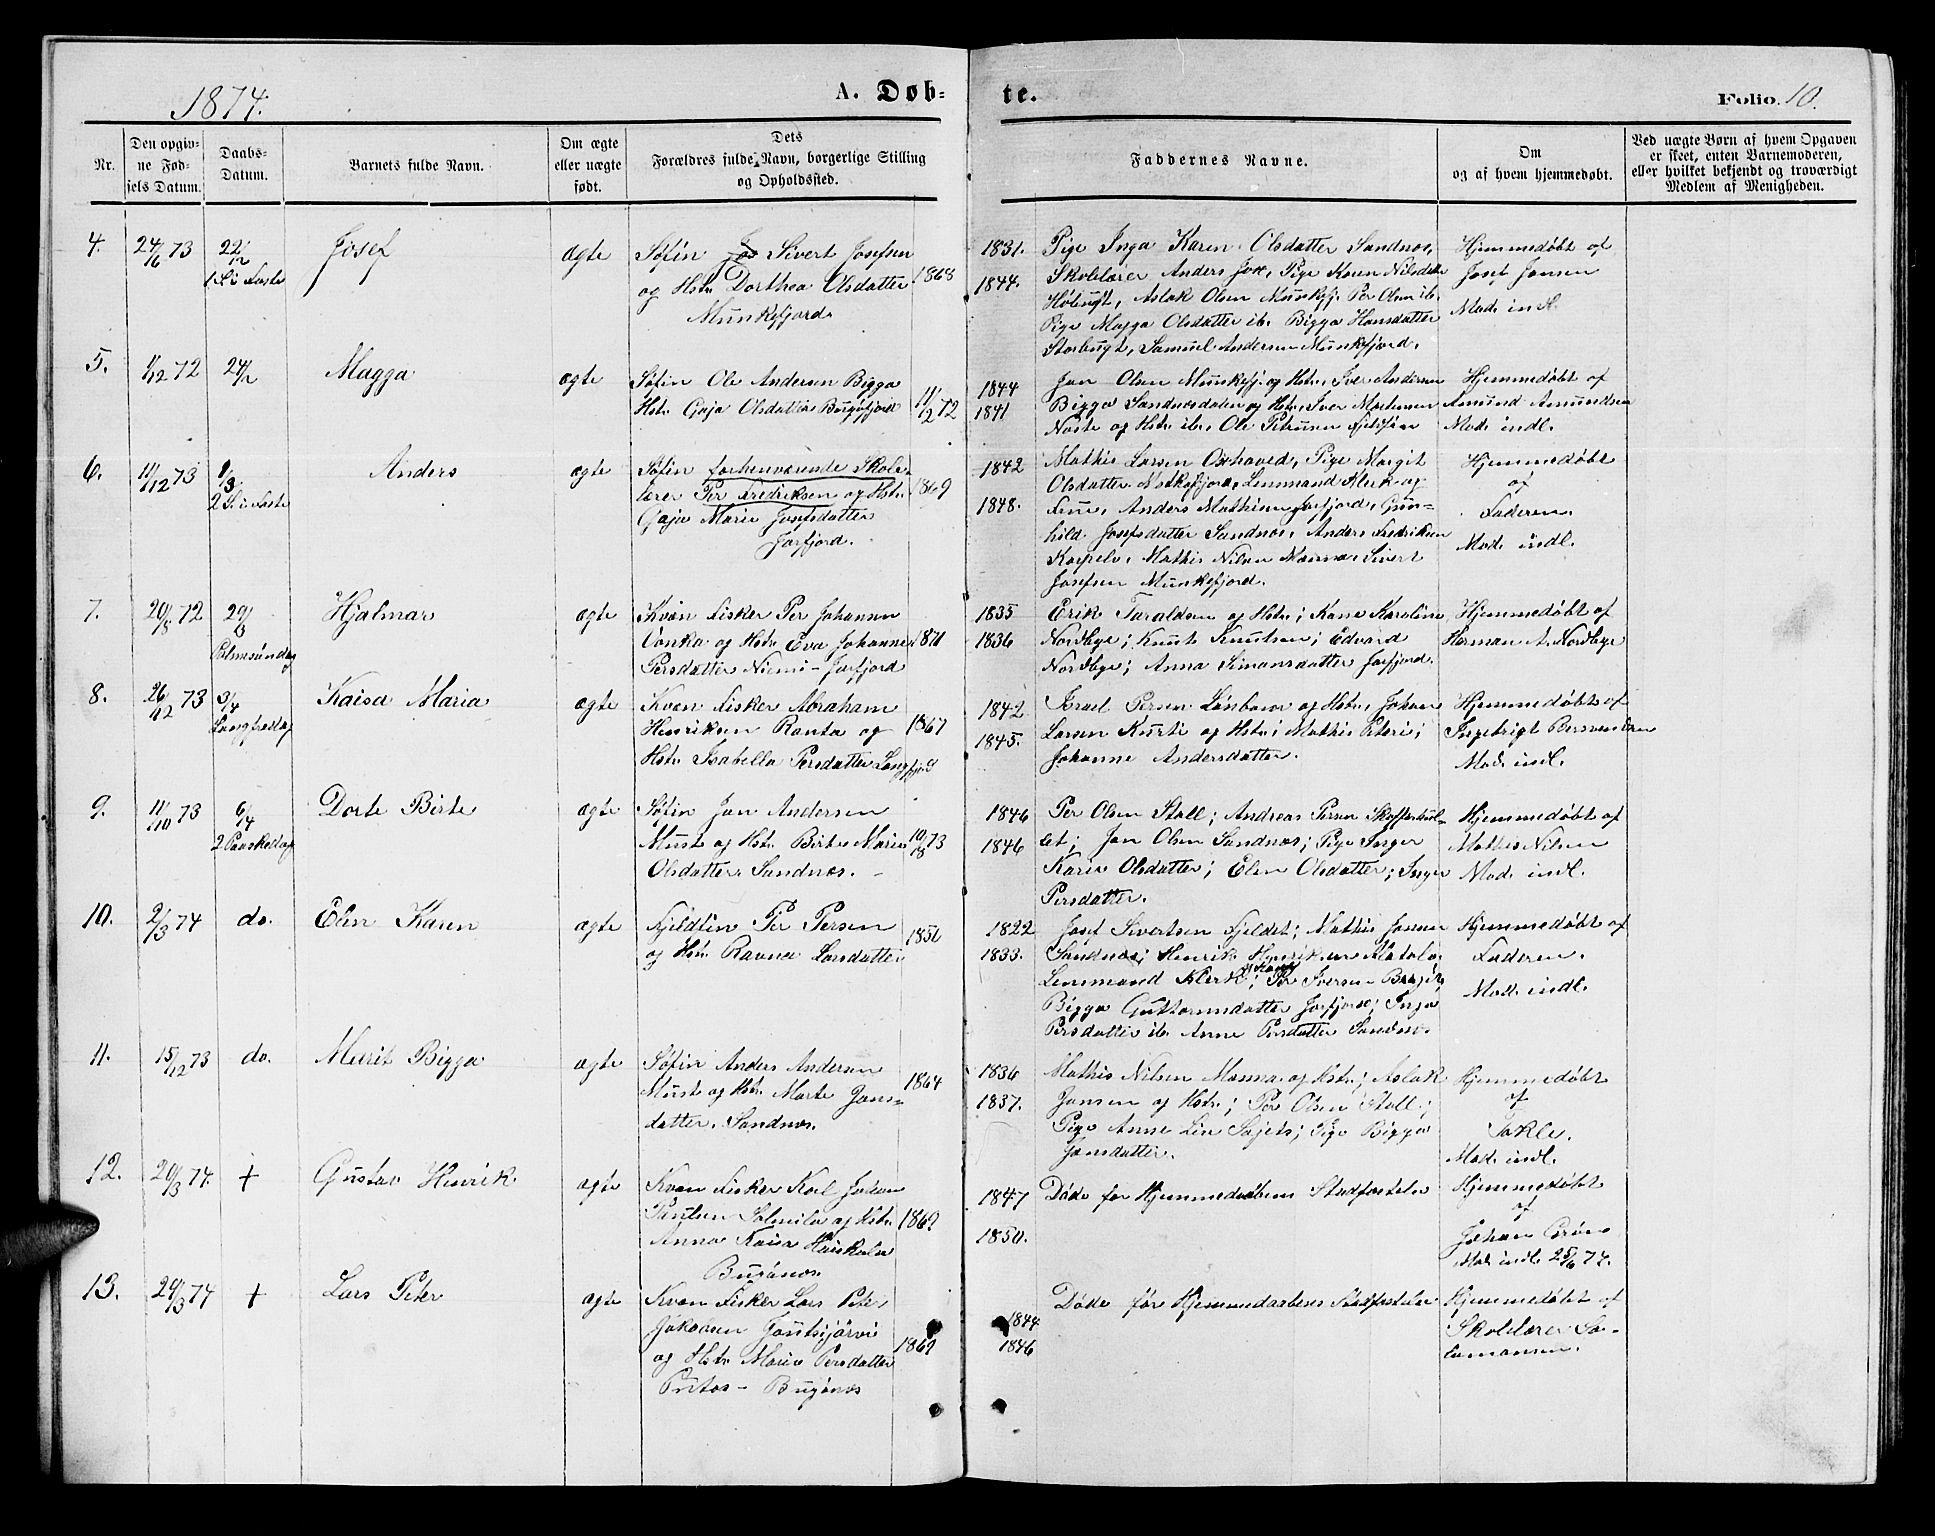 1874.
A. Døb-
te.
Folio 10.
Nr.
Den opgiv-
ne Fød-
sels Datum.
Daabs-
Datum.
Barnets fulde Navn.
Om ægte
eller uægte
født.
Dets
Forældres fulde Navn, borgerlige Stilling
og Opholdssted.
Faddernes Navne.
Om
og af hvem hjemmedøbt.
Ved uægte Børn af hvem Opgaven
er skeet, enten Barnemoderen,
eller hvilket bekjendt og troværdigt
Medlem af Menigheden.
4.
24/6 73
22/2
1 S. i Faste
Josef
ægte
Søfin Jos Sivert Josefsen
og Hstr. Dorthea Olsdatter
Munkefjord.
1868
1831.
1844.
Pige Inga Karen Olsdatter Sandnæs,
Skolelærer Anders Jox, Pige Karen Nilsdatter
Høibugt, Aslak Olsen Munkefj. Per Olsen ib.
Pige Magga Olsdatter ib. Bigga Hansdatter
Storbugt, Samuel Andersen Munkefjord.
Hjemmedøbt af
Josef Jansen
Mod. indl.
5.
1/12 72
24/2
Magga
ægte
Søfin Ole Andersen Bigga
Hstr. Gaja Olsdatter Bugøfjord
11/2 72
1844
1841
Jon Olsen Munkefj. og Hstr. Iver Andersen
Bigga Sandnæsdalen og Hstr. Iver Mortensen
Noste og Hstr. ib. Ole Petrusen Fjeldfin
Hjemmedøbt af
Amund Amundsen
Mod. indl.
6.
11/12 73
1/3
2 S. i Faste
Anders
ægte
Søfin forhenværende Skole-
lærer Per Fredriksen og Hstr.
Gaja Marie Josefsdatter
Jarfjord.
1869
1842
1848.
Mathis Larsen Oxhoved, Pige Margit
Olsdatter Munkefjord, Lensmand Klerk og
Frue, Anders Mathisen Jarfjord, Gun-
hild Josefsdatter Sandnæs, Anders Fredriksen
Karpelv, Mathis Nilsen Manna, Sivert
Josefsen Munkefjord.
Hjemmedøbt
af
Faderen.
Mod. indl.
7.
20/8 72
29/3
Palmesøndag
Hjalmar
ægte
Kvæn Fisker Per Johansen
Vonka og Hstr. Eva Johanne
Persdatter Niemi - Jarfjord
1871
1835
1836
Erik Taraldsen og Hstr.; Kone Karoline
Nordbye; Knut Knutsen; Edvard
Nordbye; Anna Simonsdatter Jarfjord.
Hjemmedøbt af
Herman A. Nordbye
8.
26/12 73
3/4
Langfredag
Kaisa Maria
ægte
Kvæn Fisker Abraham
Henriksen Ranta og
Hstr. Isabella Persdatter Langfjord
1867
1842
1845.
Israel Persen Lønbom og Hstr., Johan
Larsen Kurti og Hstr.; Mathis Peteri;
Johanne Andersdatter.
Hjemmedøbt af
Ingebrigt Bersvendsen
Mod. indl.
9.
11/10 73
6/4
2 Paaskedag
Dorte Birte
ægte
Søfin Jon Andersen
Must og Hstr. Birte Marie
Olsdatter. Sandnæs.
10/8 73
1846
1846
Per Olsen Stoll; Andreas Persen Skafferhul-
let; Jon Olsen Sandnæs; Pige Inger
Karin Olsdatter; Elen Olsdatter; Inger
Persdatter.
Hjemmedøbt af
Mathis Nilsen
Mod. indl.
10.
2/3 74
do.
Elen Karen
ægte
Fjeldfin Per Persen
og Hstr. Ravna Larsdatter
1856
1822
1833.
Josef Sivertsen Fjeldet; Mathis Jansen
Sandnæs; Henrik Henriksen Alatalo
Lensmand Klerk; Per Iversen Bugøf.
Bigga Guttormsdatter Jarfjord; Inga
Persdatter ib. Anne Persdatter Sandnæs.
Hjemmedøbt af
Faderen.
Mod. indl.
11.
15/12 73
do.
Marit Bigga
ægte
Søfin Anders Andersen
Must og Hstr. Marte Jons-
datter. Sandnæs.
1864
1836
1837.
Mathis Nilsen Manna og Hstr.; Aslak
Jonsen og Hstr.; Per Olsen Stoll;
Pige Anne Lise Sajets; Pige Bigga
Jonsdatter.
Hjemmedøbt
af
Takle.
Mod. indl.
12.
20/3 74.
+
Gustav Henrik
ægte
Kvæn Fisker Karl Johan
Paulsen Salmila og Hstr.
Anna Kaisa Haiskala
Bugønæs.
1869
1847
1850.
Døde før Hjemmedaabens Stadfæstelse
Hjemmedøbt
af
Johan Grøn
Mod. indl. 25/6 74.
13.
29/3 74
+
Lars Peter
ægte
Kvæn Fisker Lars Peter
Jakobsen Fontsijärvi
og Hstr. Maria Persdatter
Puitas - Bugønæs
1869
1844
1846
Døde før Hjemmedaabens Stadfæstelse
Hjemmedøbt af
Skolelærer Sa-
lamonsen.